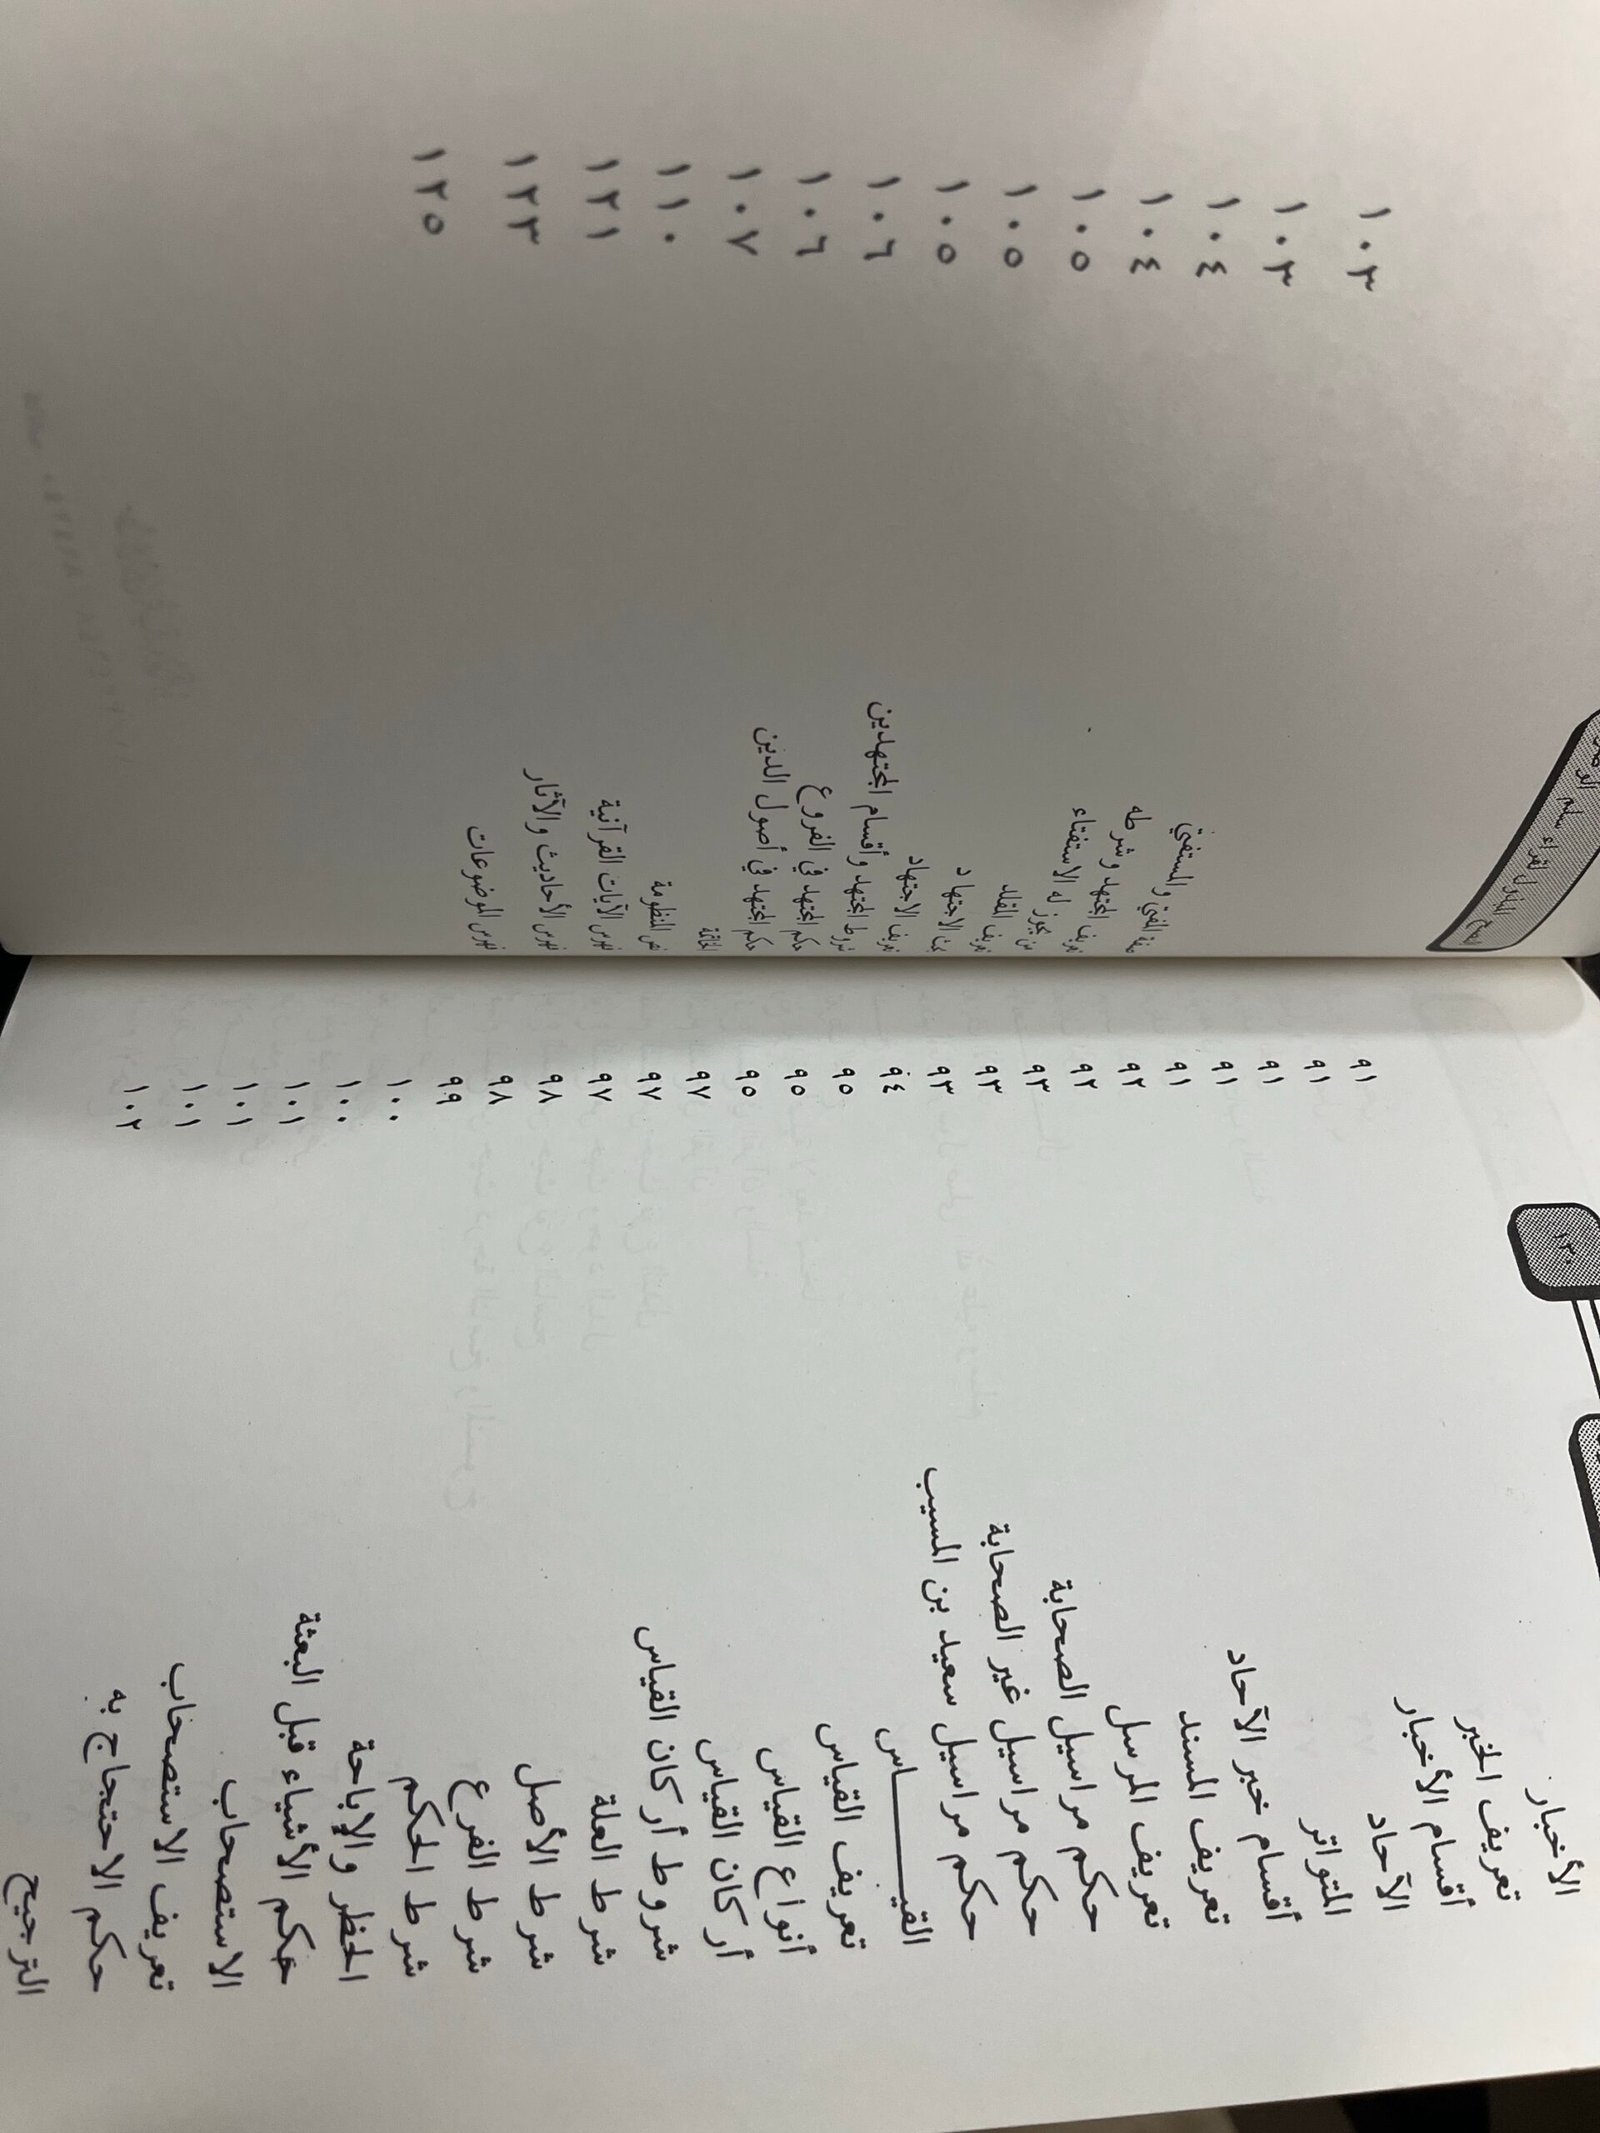 ١٣٠
الأخبار ٩١
تعريف الخبر ٩١
أقسام الأخبار ٩١
الآحاد ٩١
المتواتر ٩١
أقسام خبر الآحاد ٩٢
تعريف المسند ٩٢
تعريف المرسل ٩٣
حكم مراسيل الصحابة ٩٣
حكم مراسيل غير الصحابة ٩٣
حكم مراسيل سعيد بن المسيب ٩٤
القيــــــاس ٩٥
تعريف القياس ٩٥
أنواع القياس ٩٥
أركان القياس ٩٧
شروط أركان القياس ٩٧
شرط العلة ٩٧
شرط الأصل ٩٨
شرط الفرع ٩٨
شرط الحكم ٩٩
الحظر والإباحة ١٠٠
حكم الأشياء قبل البعثة ١٠٠
الاستصحاب ١٠١
تعريف الاستصحاب ١٠١
حكم الاحتجاج به ١٠١
الترجيح ١٠٢
المبذول لقراء سلم
صفة المفتي والمستفتي ١٠٣
تعريف المجتهد وشرطه ١٠٣
من يجوز له الاستفتاء ١٠٤
تعريف المقلد ١٠٤
بحث الاجتهاد ١٠٥
تعريف الاجتهاد ١٠٥
شروط المجتهد وأقسام المجتهدين ١٠٥
حكم المجتهد في الفروع ١٠٦
حكم المجتهد في أصول الدين ١٠٦
الخاتمة ١٠٧
نص المنظومة ١١٠
فهرس الآيات القرآنية ١٢١
فهرس الأحاديث والآثار ١٢٣
فهرس الموضوعات ١٢٥